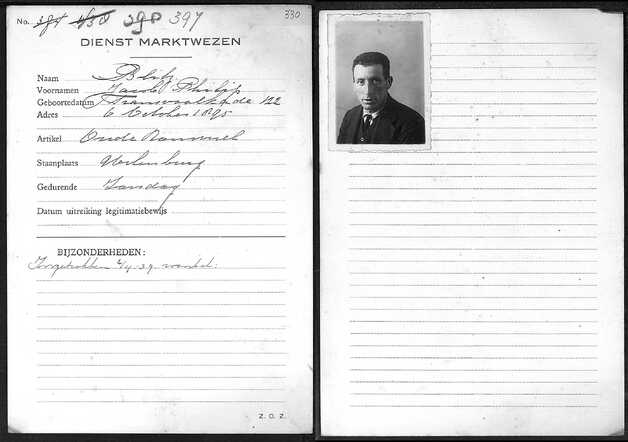 No. 390 397 330
DIENST MARKTWEZEN
Naam Blitz
Voornamen Jacob Philip
Geboortedatum Transvaalkade 122
Adres 6 October 1895
Artikel Oude
Staanplaats Uilenburg
Gedurende Zondag
Datum uitreiking legitimatiebewijs
BIJZONDERHEDEN:
Ingetrokken
Z. O. Z.